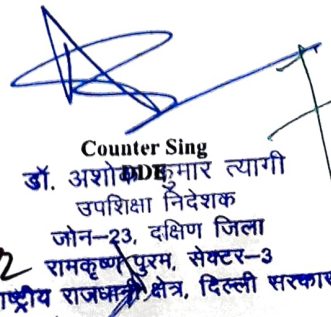 Counter Sing
DDE
डॉ. अशोक कुमार त्यागी
उपशिक्षा निदेशक
जोन-23, दक्षिण जिला
रामकृष्ण पुरम, सेक्टर-3
राष्ट्रीय राजधानी क्षेत्र, दिल्ली सरकार